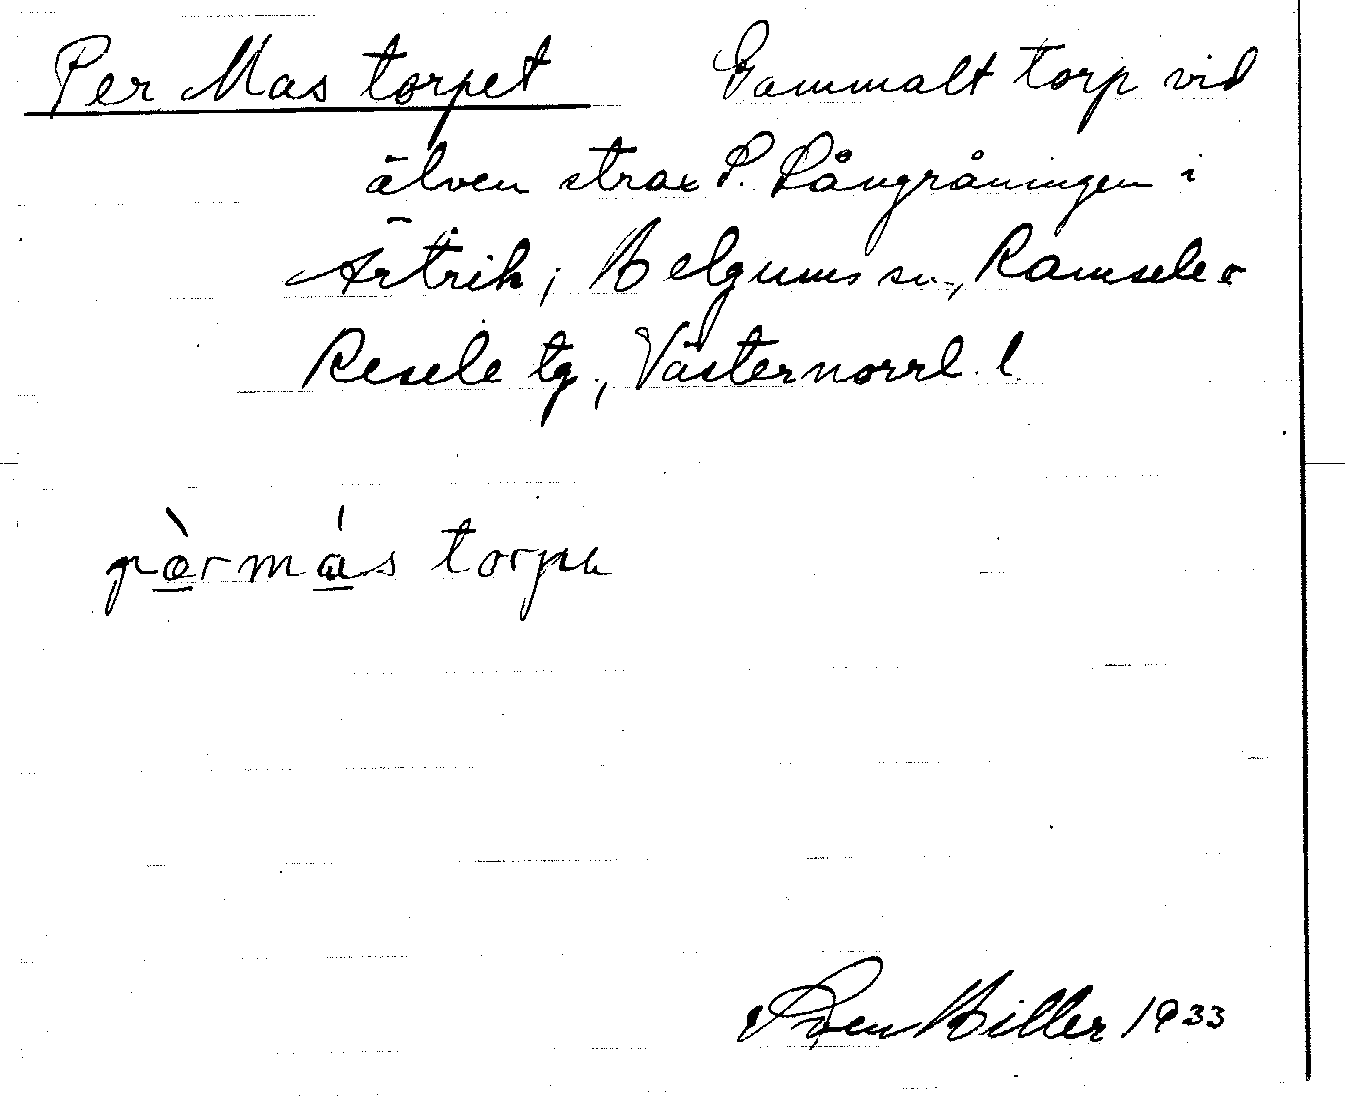 Per Mas torpet Gammalt torp vid
älven strax S. Långråningen i
Ärtrik, Helgums sn, Ramsele o
Resele tg, Västernorrl. l.
torpa
Sven Hiller 1933